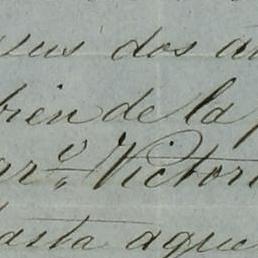 sus dos a
bien de la p
ar.º Victori
hasta aque